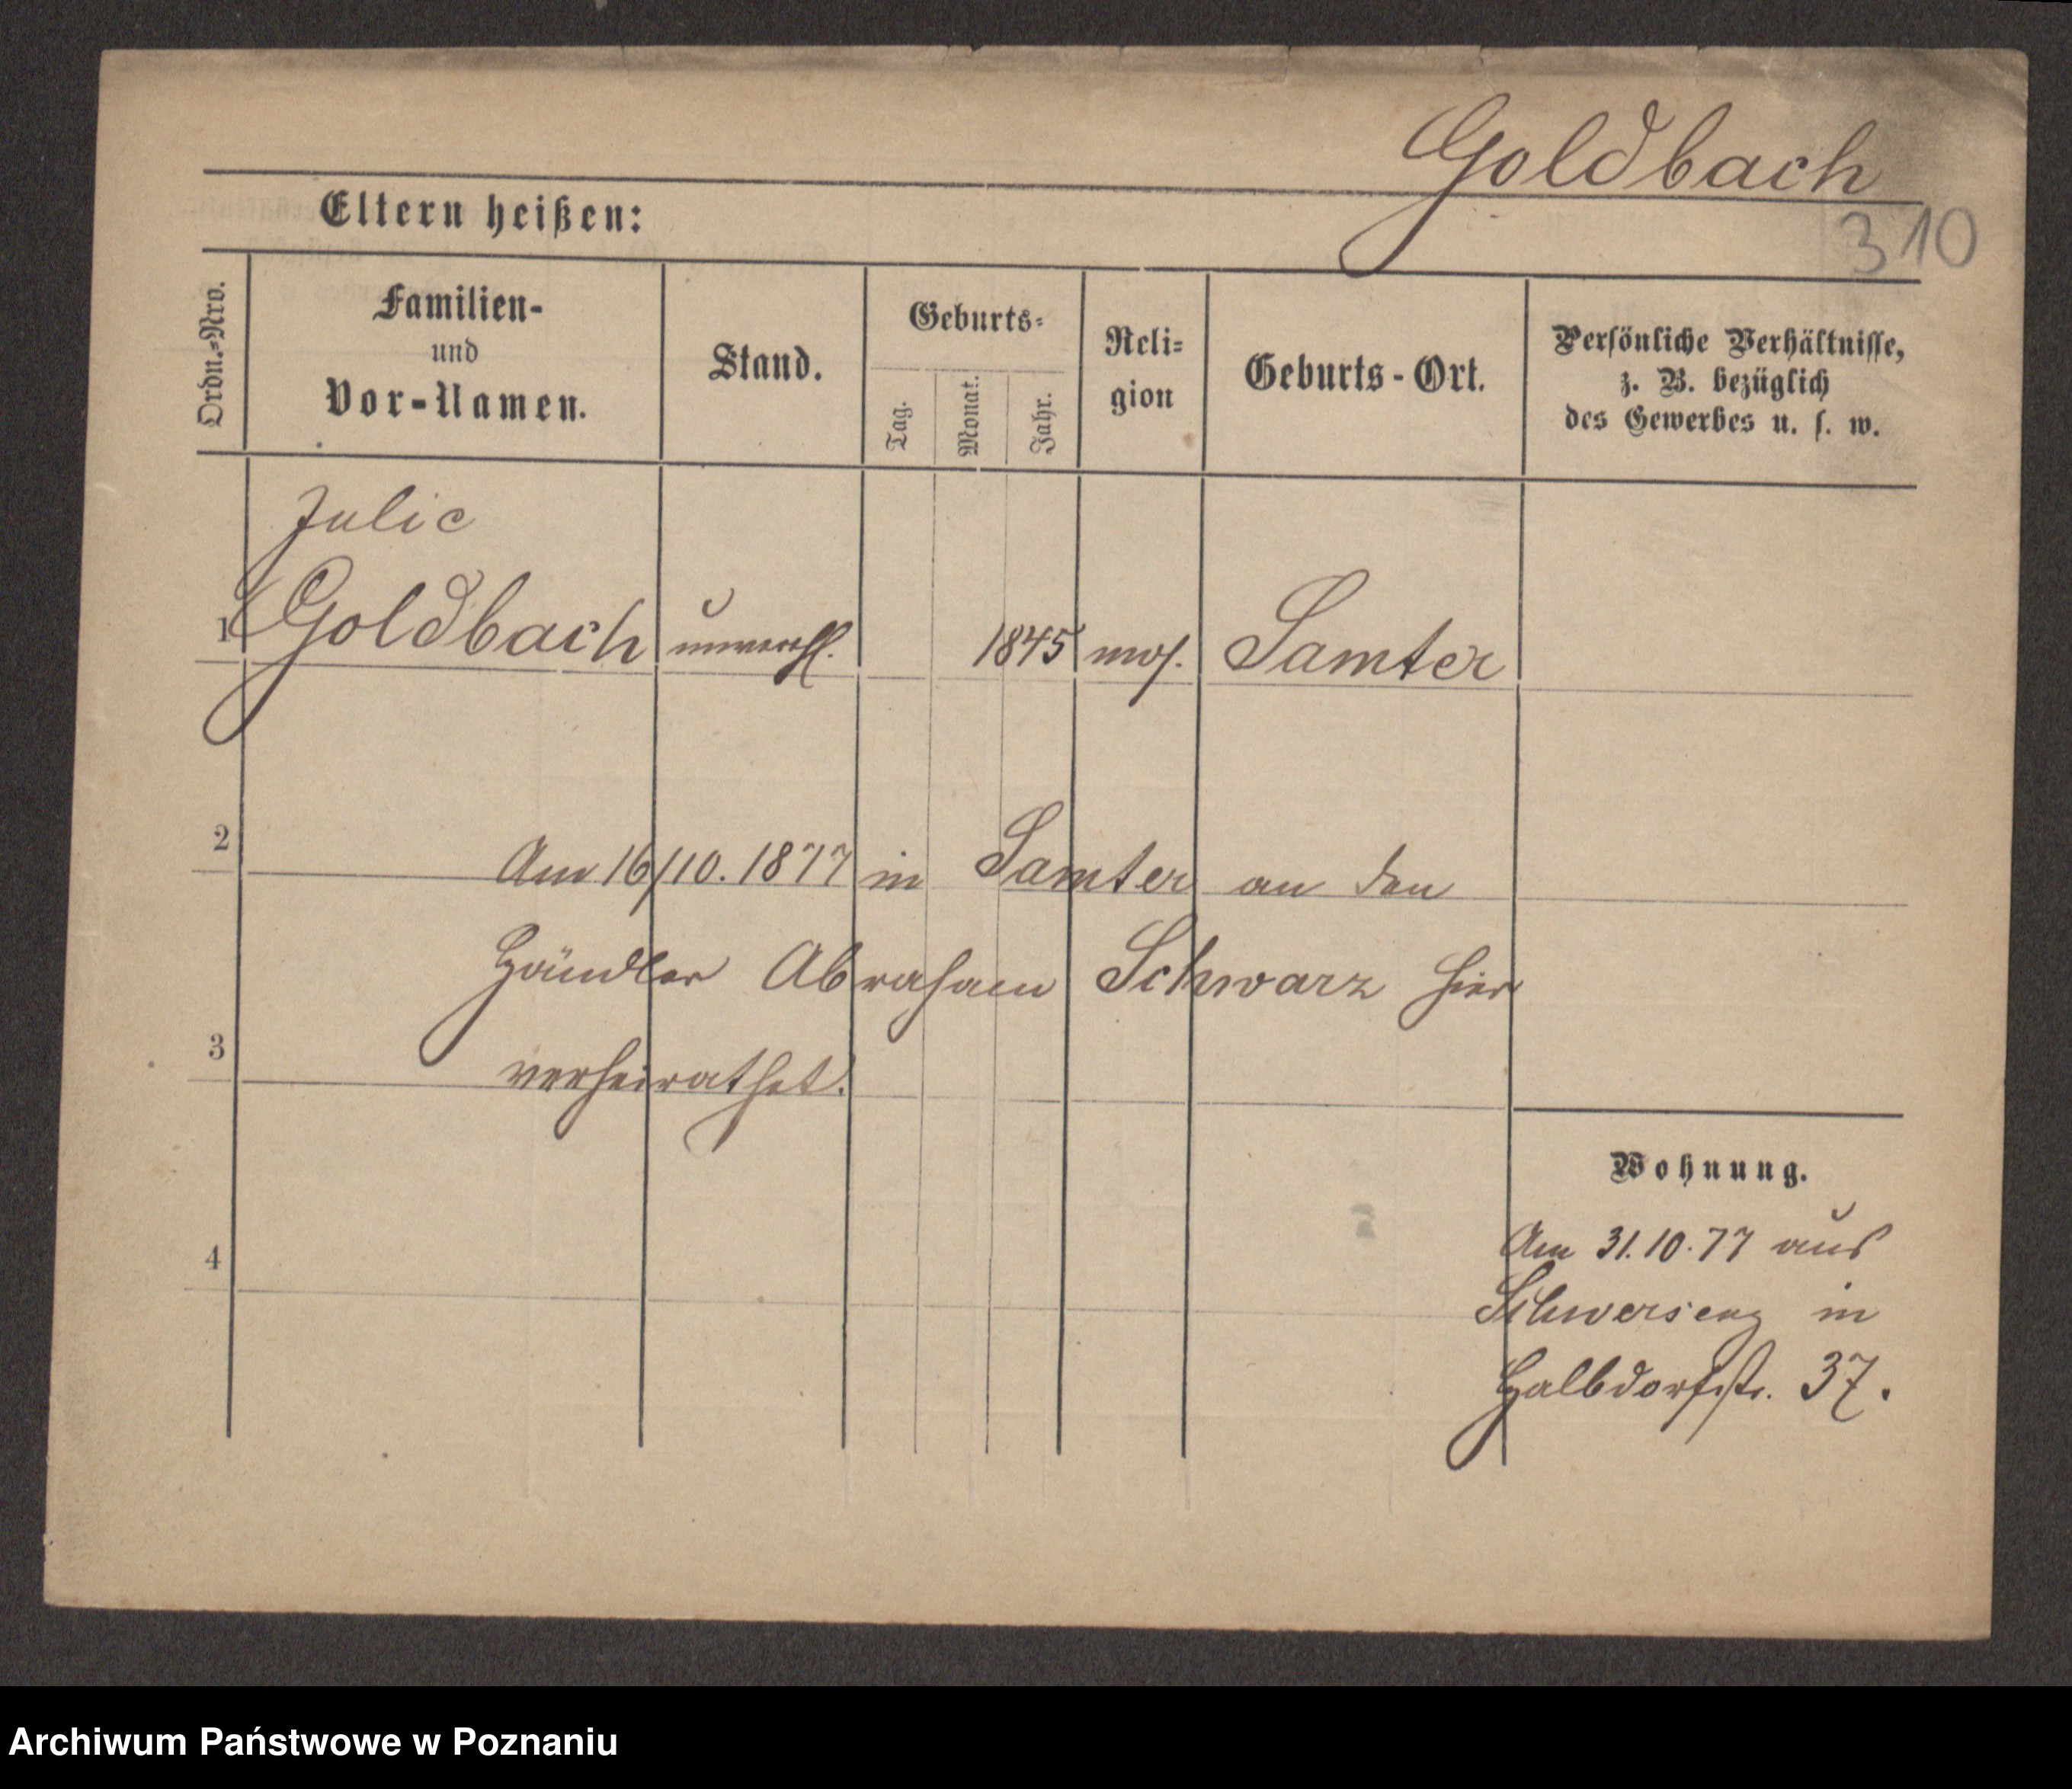 Goldbach
Eltern heißen:
310
Ordn.=Nro.
Familien-
und
Vor-Namen.
Stand.
Geburts=
Tag.
Monat.
Jahr.
Reli=
gion
Geburts-Ort.
Persönliche Verhältnisse,
z. B. bezüglich
des Gewerbes u. s. w.
Julie
1 Goldbach unverehl. 1845 mos. Samter
2
Am 16/10. 1877 in Samter an den
Händler Abraham Schwarz hier
3
verheirathet.
Wohnung.
4
Am 31.10.77 aus
Schwersenz in
Halbdorfstr. 37.
Archiwum Państwowe w Poznaniu